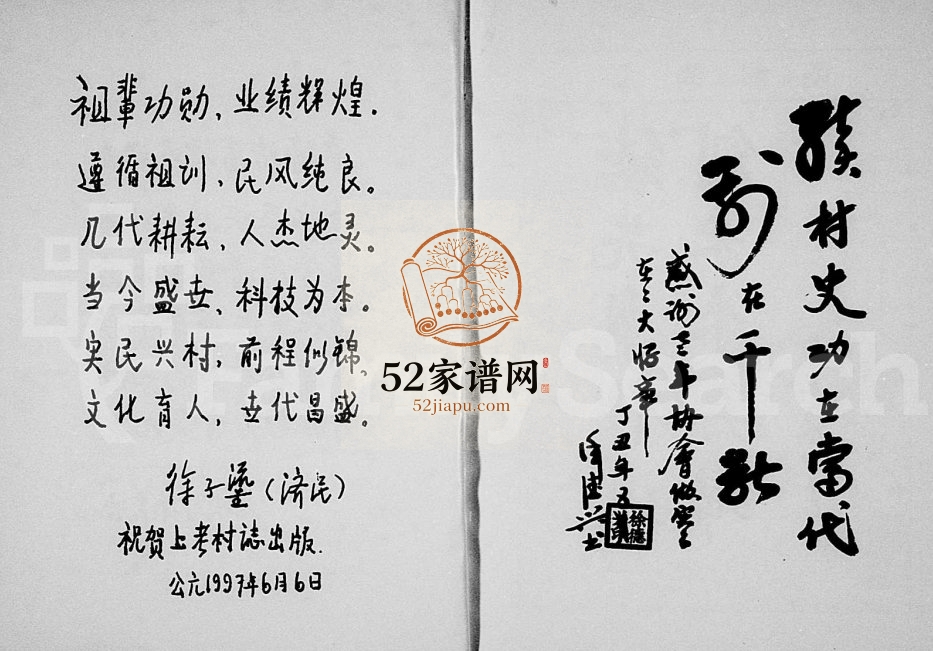 祖辈功勋、业绩辉煌.
遵循祖训、民风纯良。
几代耕耘、人杰地灵。
当今盛世、科技为本。
实民兴村，前程似锦。
文化育人，世代昌盛。
徐子鎏（济民）
祝贺上老村誌出版.
公元1997年6月6日
续村史功在當代
利在千秋
感谢三年协會做
大好事
丁丑年五
徐德兴书
徐德
52家谱网
52jiapu.com
FamilySearch